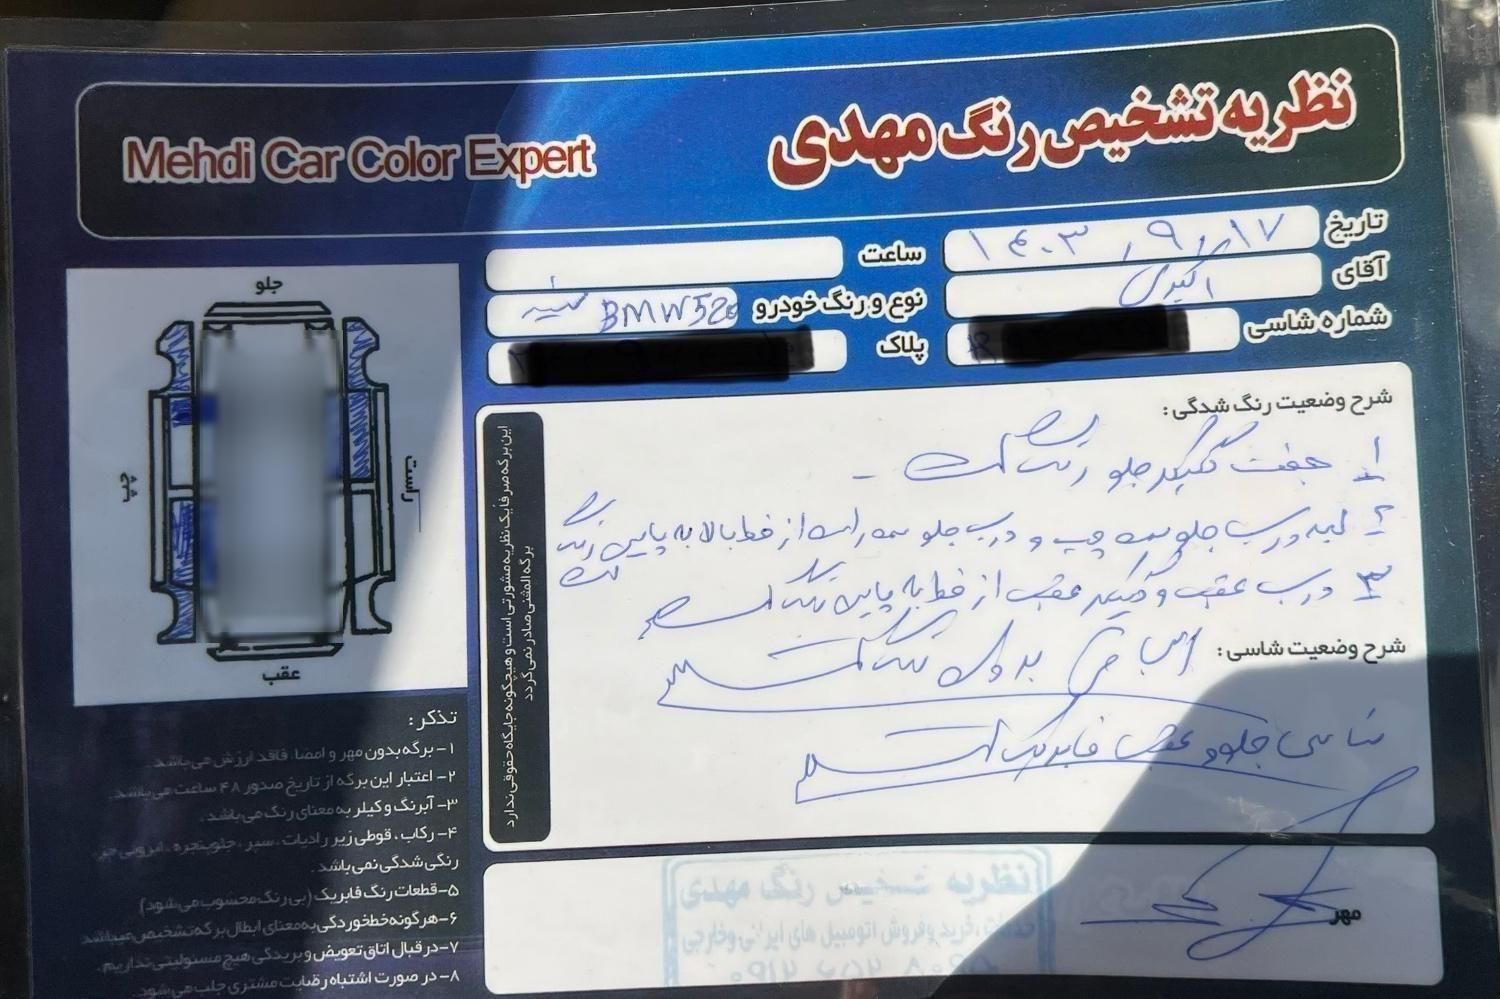 نظریه تشخیص رنگ مهدی
Mehdi Car Color Expert
تاریخ ۱۴۰۳/۹/۱۷
ساعت
آقای اکبری
نوع و رنگ خودرو BMW 520
شماره شاسی
پلاک
جلو
چپ
راست
عقب
شرح وضعیت رنگ شدگی :
۱ـ جفت گلگیر جلو رنگ است ـ
۲ـ لبه درب جلو سمت چپ و درب جلو سمت راست از خط بالا به پایین رنگ است
۳ـ درب عقب و گلگیر عقب از خط به پایین رنگ است
شرح وضعیت شاسی :
بدون رنگ است
شاسی جلو و عقب فابریک است
این برگه صرفا یک نظریه مشورتی است و هیچگونه جایگاه حقوقی ندارد
برگه المثنی صادر نمی گردد
تذکر :
۱- برگه بدون مهر و امضا، فاقد ارزش می باشد.
۲- اعتبار این برگه از تاریخ صدور ۴۸ ساعت می باشد.
۳- آبرنگ و کیلر به معنای رنگ می باشد.
۴- رکاب، قوطی زیر رادیات، سپر، جلوپنجره، ابرویی جز
رنگی شدگی نمی باشد.
۵-قطعات رنگ فابریک (بی رنگ محسوب می شود)
۶-هرگونه خط خوردگی به معنای ابطال برگه تشخیص میباشد
۷-در قبال اتاق تعویض و بریدگی هیچ مسئولیتی نداریم.
۸- در صورت اشتباه رضایت مشتری جلب می شود.
مهر
نظریه تشخیص رنگ مهدی
خدمات، خرید و فروش اتومبیل های ایرانی و خارجی